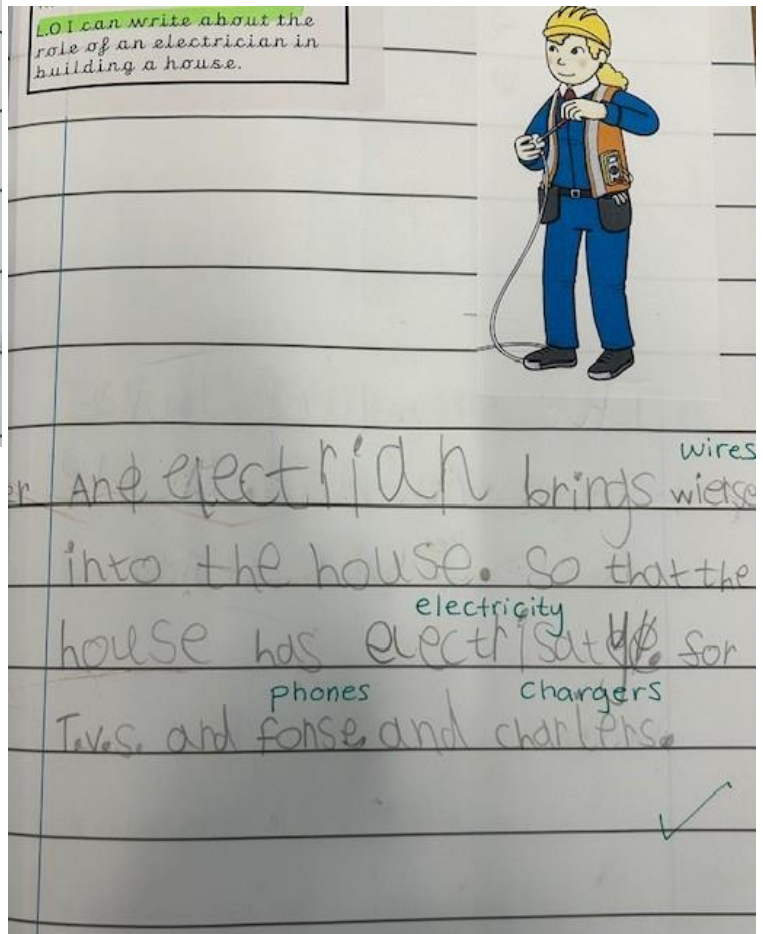 L.O I can write about the
role of an electrician in
building a house.
wires
An electrian brings wierse
into the house. So that the
electricity
house has electrisaty for
phones chargers
T.v.s. and fonse and charlers.